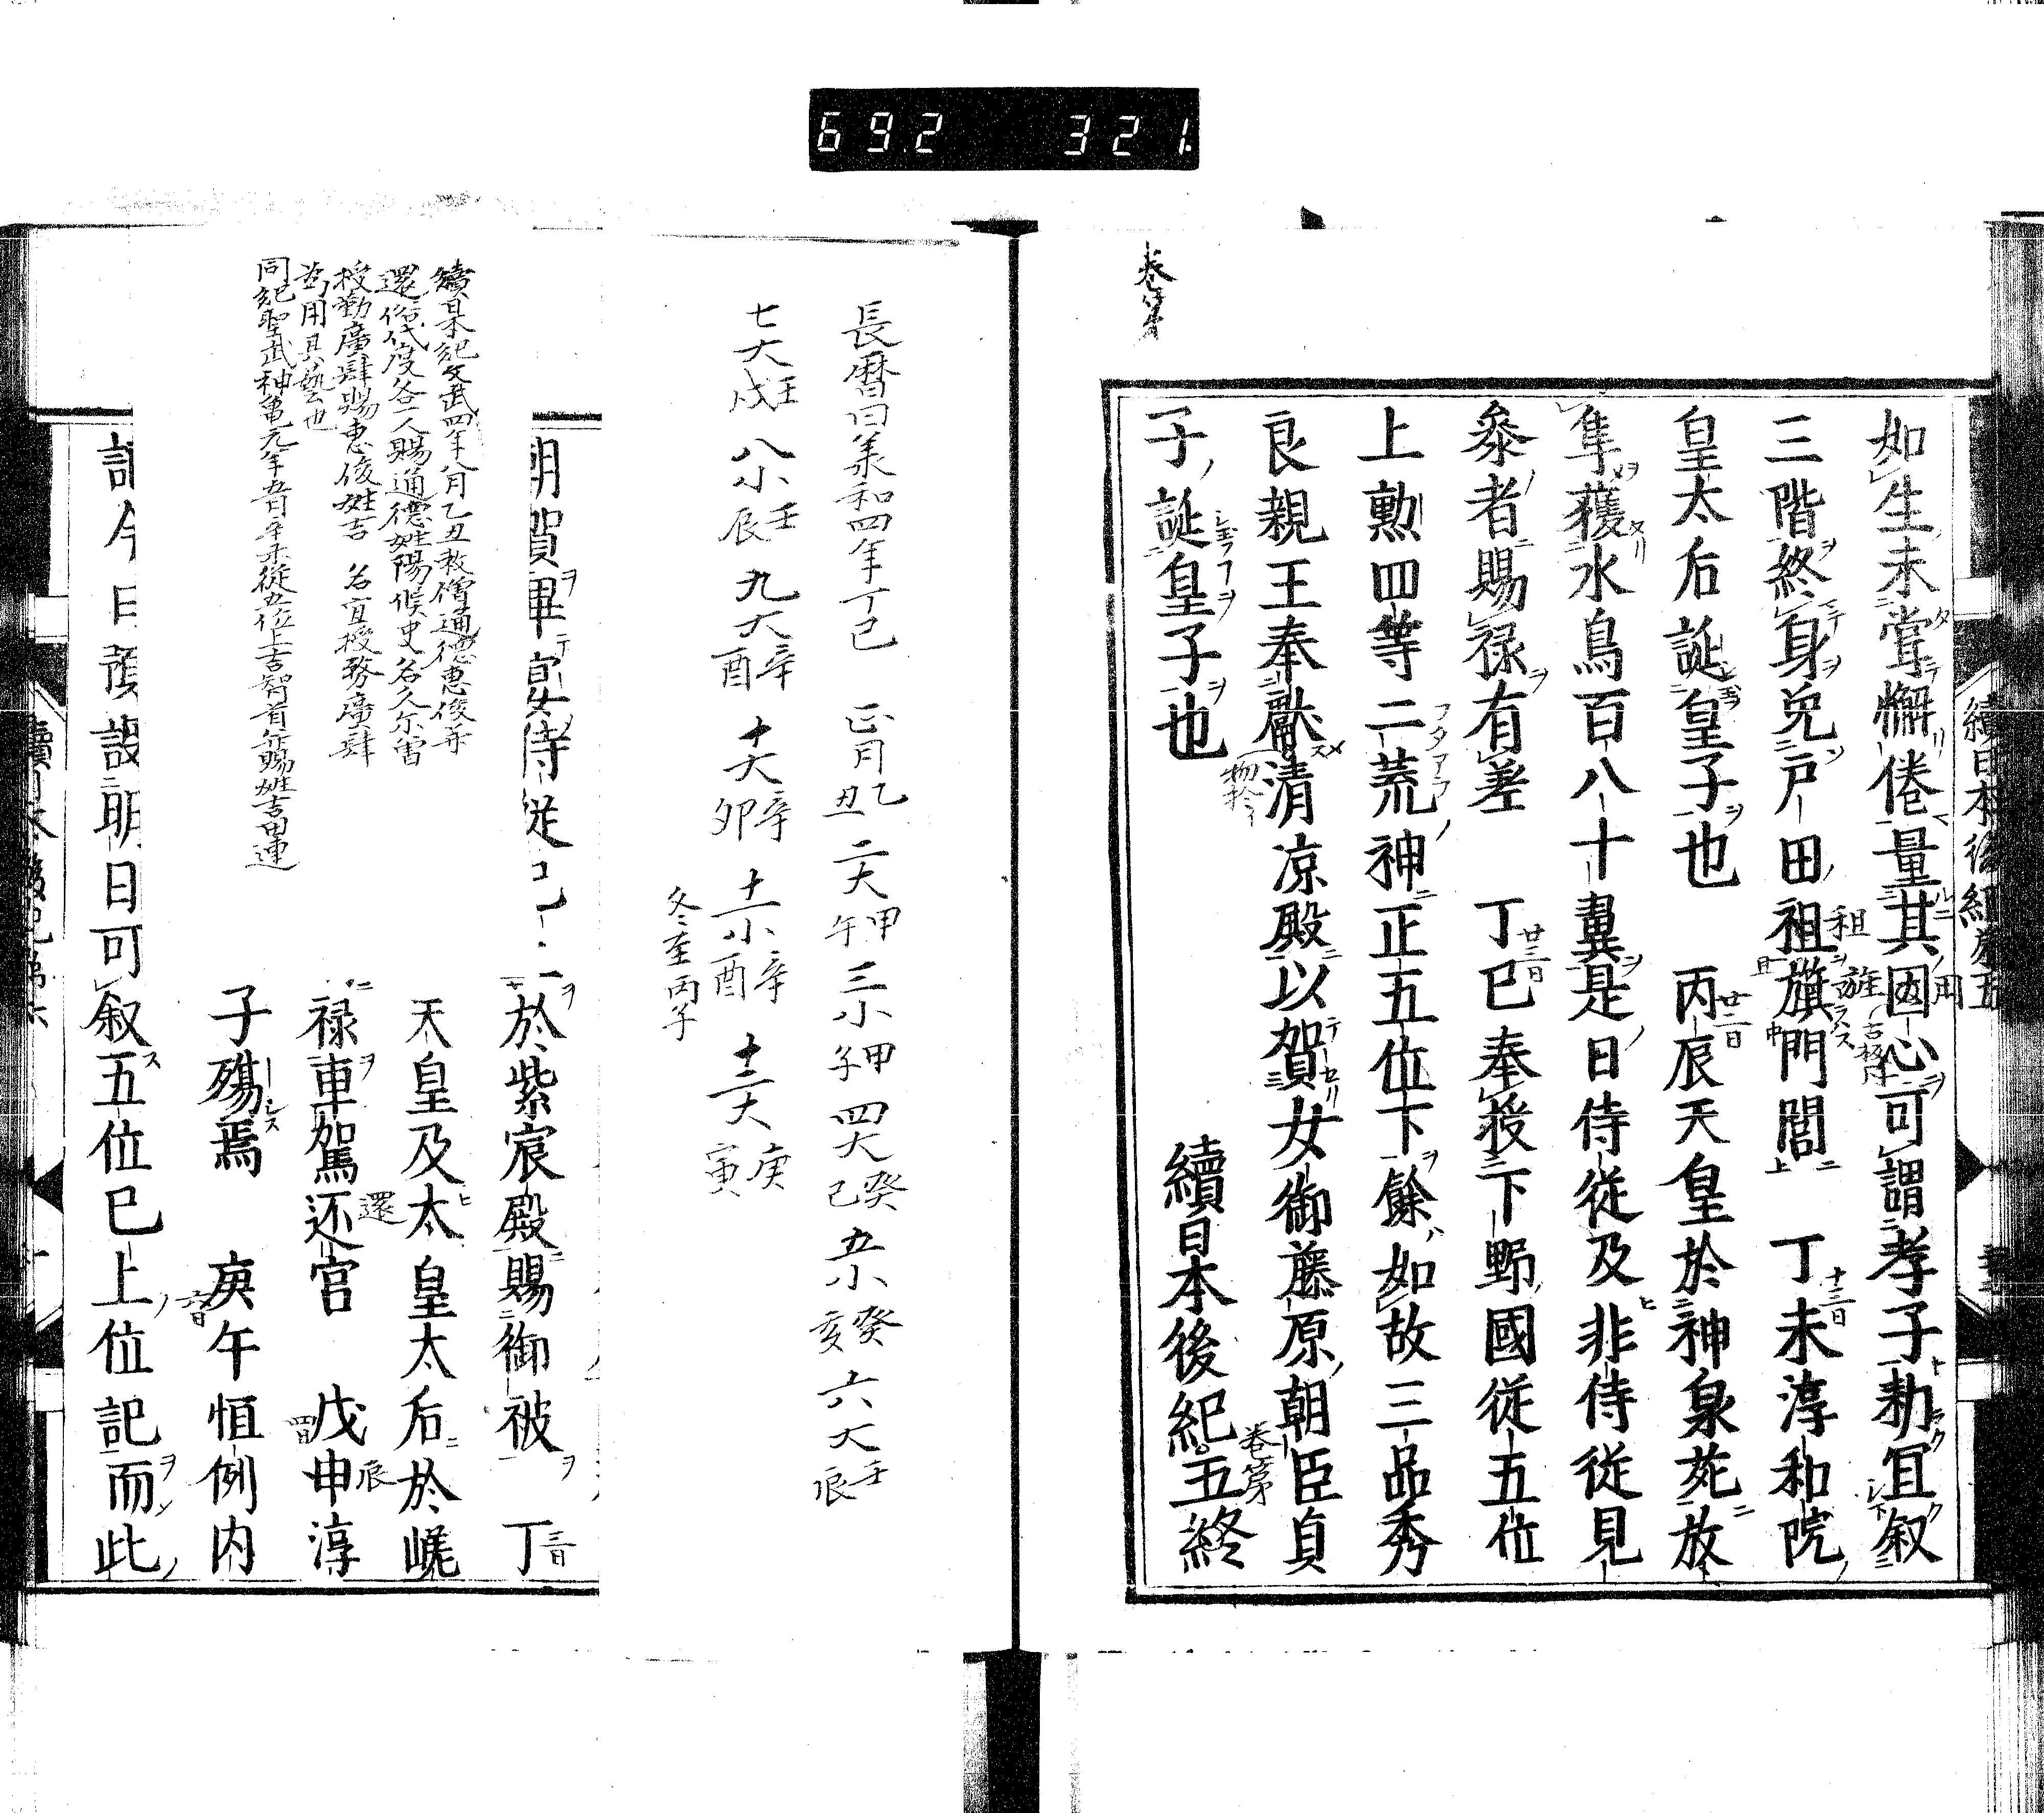 692 321
如生未嘗懈倦量其因心可謂孝子勅宜叙
三階終身免戸田祖旗門閭 丁未淳和院
皇太后誕皇子也 丙辰天皇於神泉苑放
隼獲水鳥百八十翼是日侍従及非侍従見
叅者賜禄有差 丁巳奉授下野國従五位
上勲四等二荒神正五位下餘如故三品秀
良親王奉獻清凉殿以賀女御藤原朝臣貞
子誕皇子也 續日本後紀五終
巻第
卷第
租
旌
十三日
廿二日
廿三日
長暦曰義和四年丁巳 正月乙丑 二大甲午 三小甲子 四大癸巳 五小癸亥 六大壬辰
七大壬戌 八小壬辰 九大辛酉 十大辛卯 十一小辛酉 十二大庚寅
冬至丙子
朝賀畢宴侍従已上於紫宸殿賜御被 丁
三日
天皇及太皇太后於嵯
禄車駕还宮 戊申淳
還
四日
辰
子殤焉 庚午恒例内
六日
詔今日預設明日可叙五位已上位記而此
續日本紀文武四年八月乙丑敕僧通德惠俊並
還俗代度各一人賜通德姓陽候史名久尓曽
授勤廣肆賜惠俊姓吉 名宜授務廣肆
爲用其藝也
同紀聖武神亀元年五月辛未従五位上吉智首並賜姓吉田連